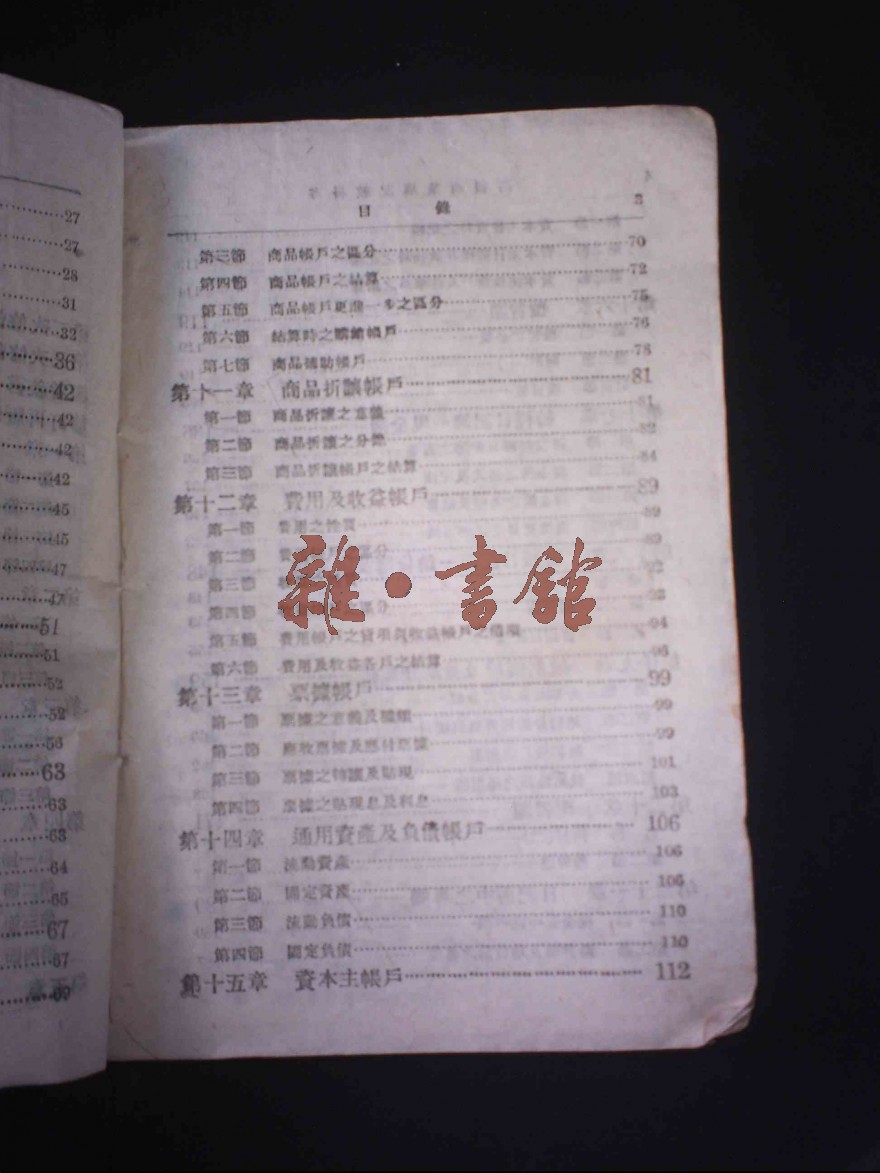 27
27
28
31
32
36
42
42
42
42
45
45
47
47
51
51
52
52
56
63
63
63
64
65
67
67
69
目 錄 3
第三節 商品帳戶之區分 70
第四節 商品帳戶之結算 72
第五節 商品帳戶更進一步之區分 75
第六節 結算時之購銷帳戶 76
第七節 商品補助帳戶 78
第十一章 商品折讓帳戶 81
第一節 商品折讓之意義 81
第二節 商品折讓之分錄 82
第三節 商品折讓帳戶之結算 84
第十二章 費用及收益帳戶 89
第一節 費用之性質 89
第二節 費 戶 區分 89
第三節 92
第四節 區分 93
第五節 費用帳戶之貸項與收益帳戶之借項 94
第六節 費用及收益各戶之結算 96
第十三章 票據帳戶 99
第一節 票據之意義及種類 99
第二節 應收票據及應付票據 99
第三節 票據之轉讓及貼現 101
第四節 票據之貼現息及利息 103
第十四章 通用資產及負債帳戶 106
第一節 流動資產 106
第二節 固定資產 106
第三節 流動負債 110
第四節 固定負債 110
第十五章 資本主帳戶 112
雜·書館